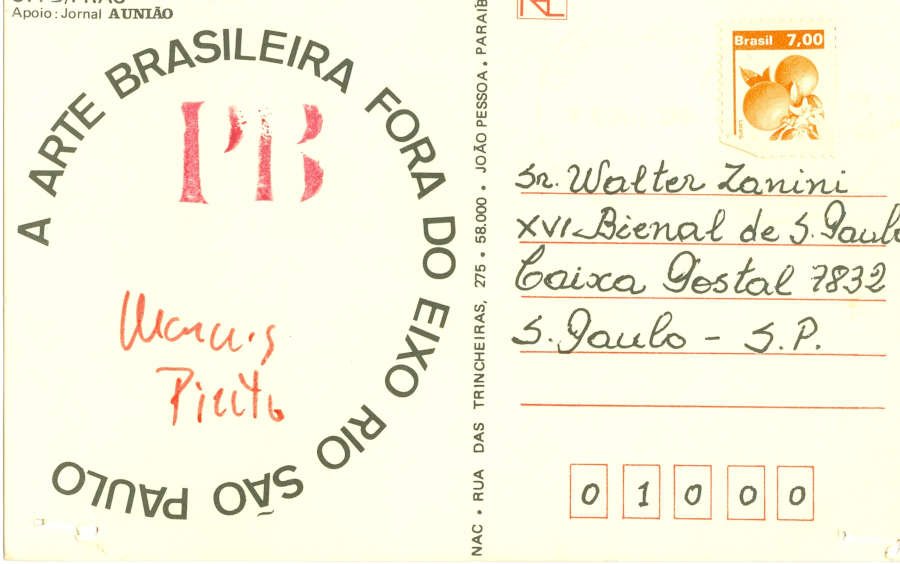 Apoio: Jornal A UNIÃO
A ARTE BRASILEIRA FORA DO EIXO RIO SÃO PAULO
PB
NAC • RUA DAS TRINCHEIRAS, 275 • 58.000 • JOÃO PESSOA • PARAIB
Brasil 7,00
Sr. Walter Zanini
XVI Bienal de S. Paulo
Caixa Postal 7832
S. Paulo - S.P.
0 1 0 0 0